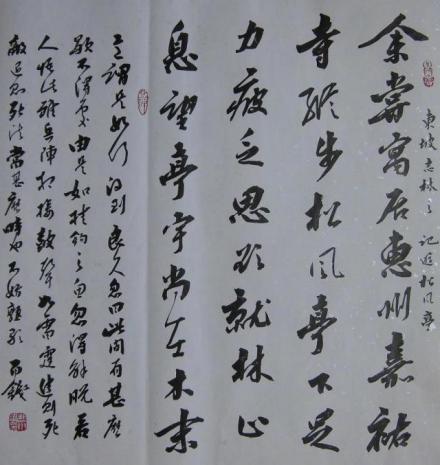 東坡志林之 記遊松風亭
余嘗寓居惠州嘉祐
寺縱步松風亭下足
力疲乏思欲就林止
息望亭宇尚在木末
意謂是如何得到良久忽曰此間有甚麼
歇不得處由是如挂鈎之魚忽得解脫若
人悟此雖兵陣相接鼓聲如雷霆進則死
敵退則死法當甚麼時也不妨熟歇